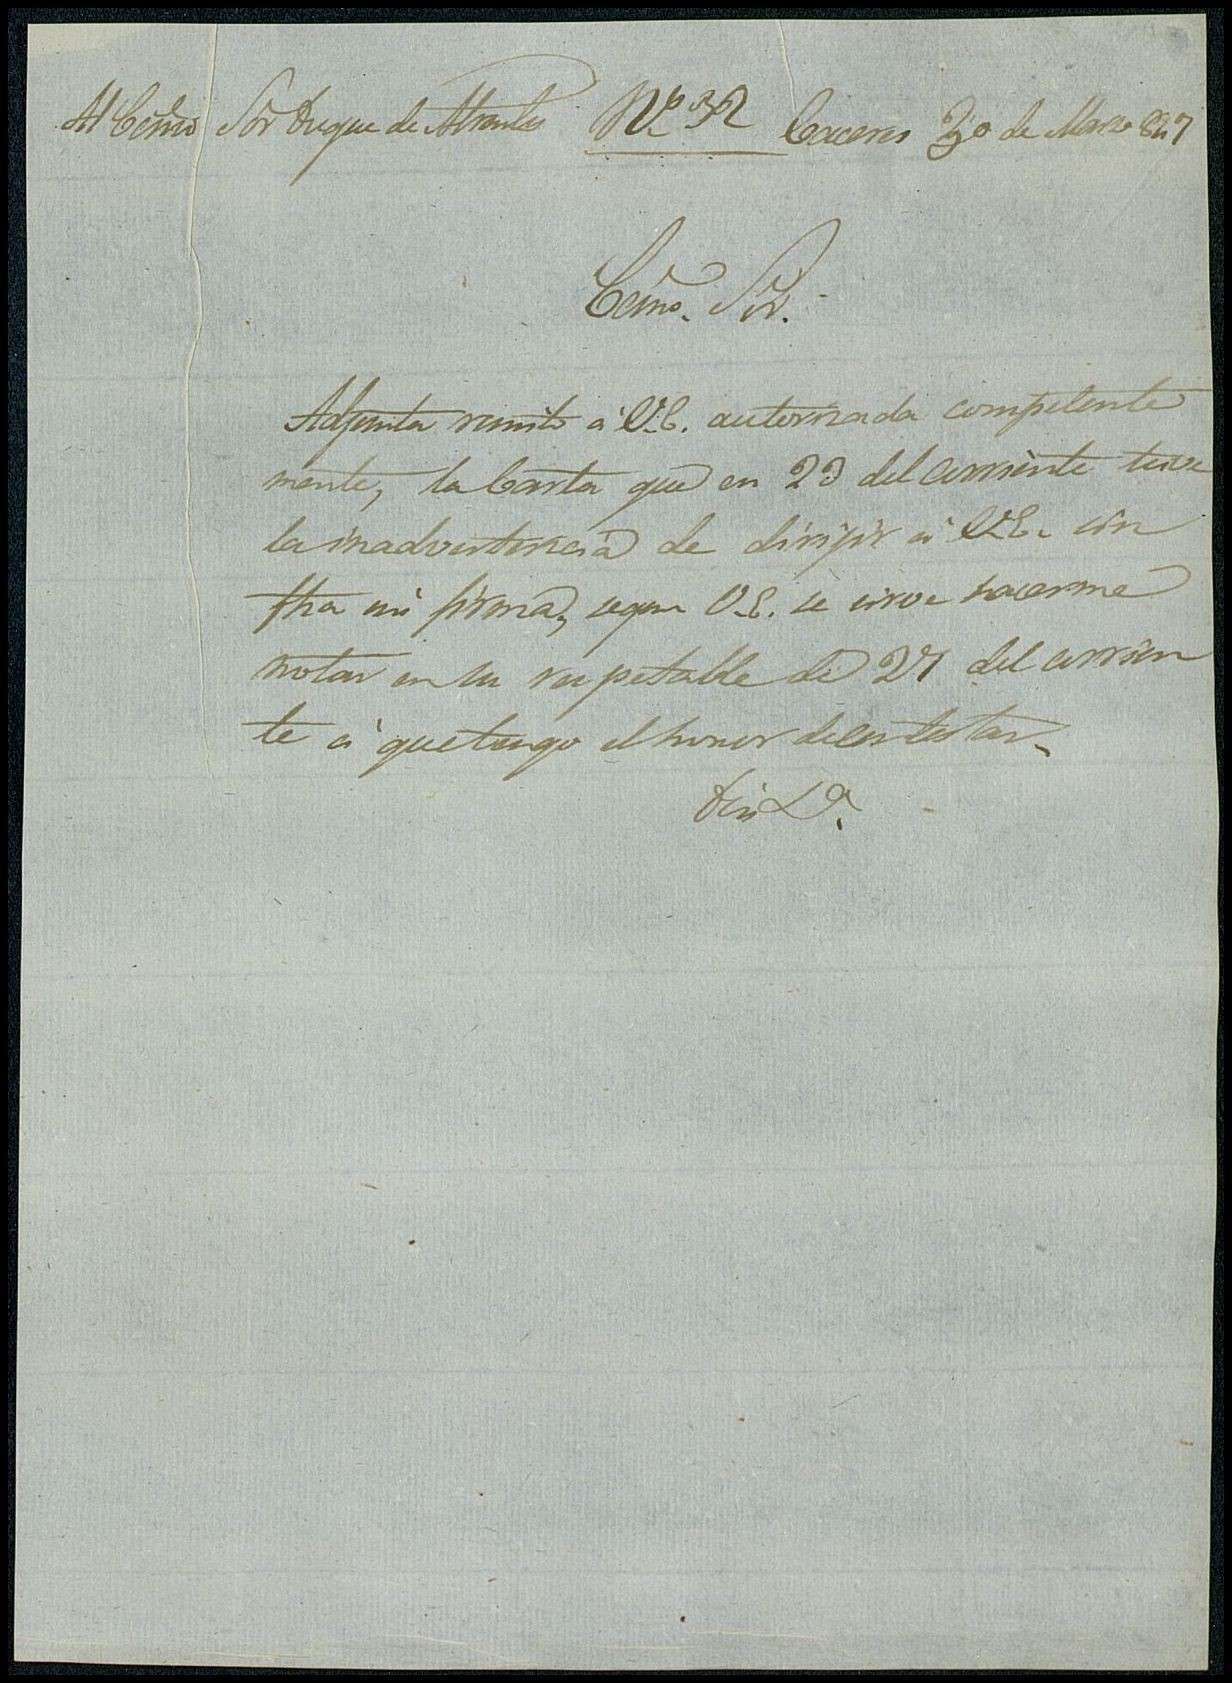 Al Exmo Sor Duque de Abrantes Nº 32 Caceres 30 de Marzo 827
Exmo. Sor.
Adjunta remito á V.E. autorizada competente
mente, la Carta que en 23 del corriente tuve
la inadvertencia de dirijir á V.E. sin
mi firma, segun V.E. se sirve hacerme
notar en su respetable de 27 del corrien
te á que tengo el honor de contestar.